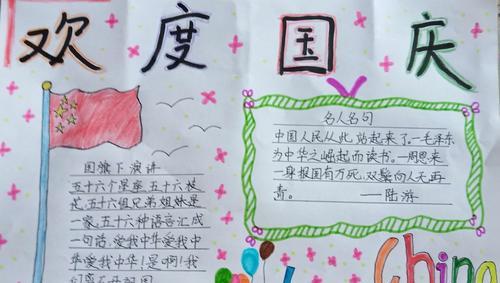 欢度国庆
国旗下演讲
五十六个星座五十六枝
花,五十六组兄弟姐妹是
一家,五十六种语言汇成
一句话,爱我中华爱我中
华爱我中华!是啊!我
名人名句
中国人民从此站起来了。一毛泽东
为中华之崛起而读书。一周恩来
一身报国有万死,双鬓向人天再
青。 ——陆游
China